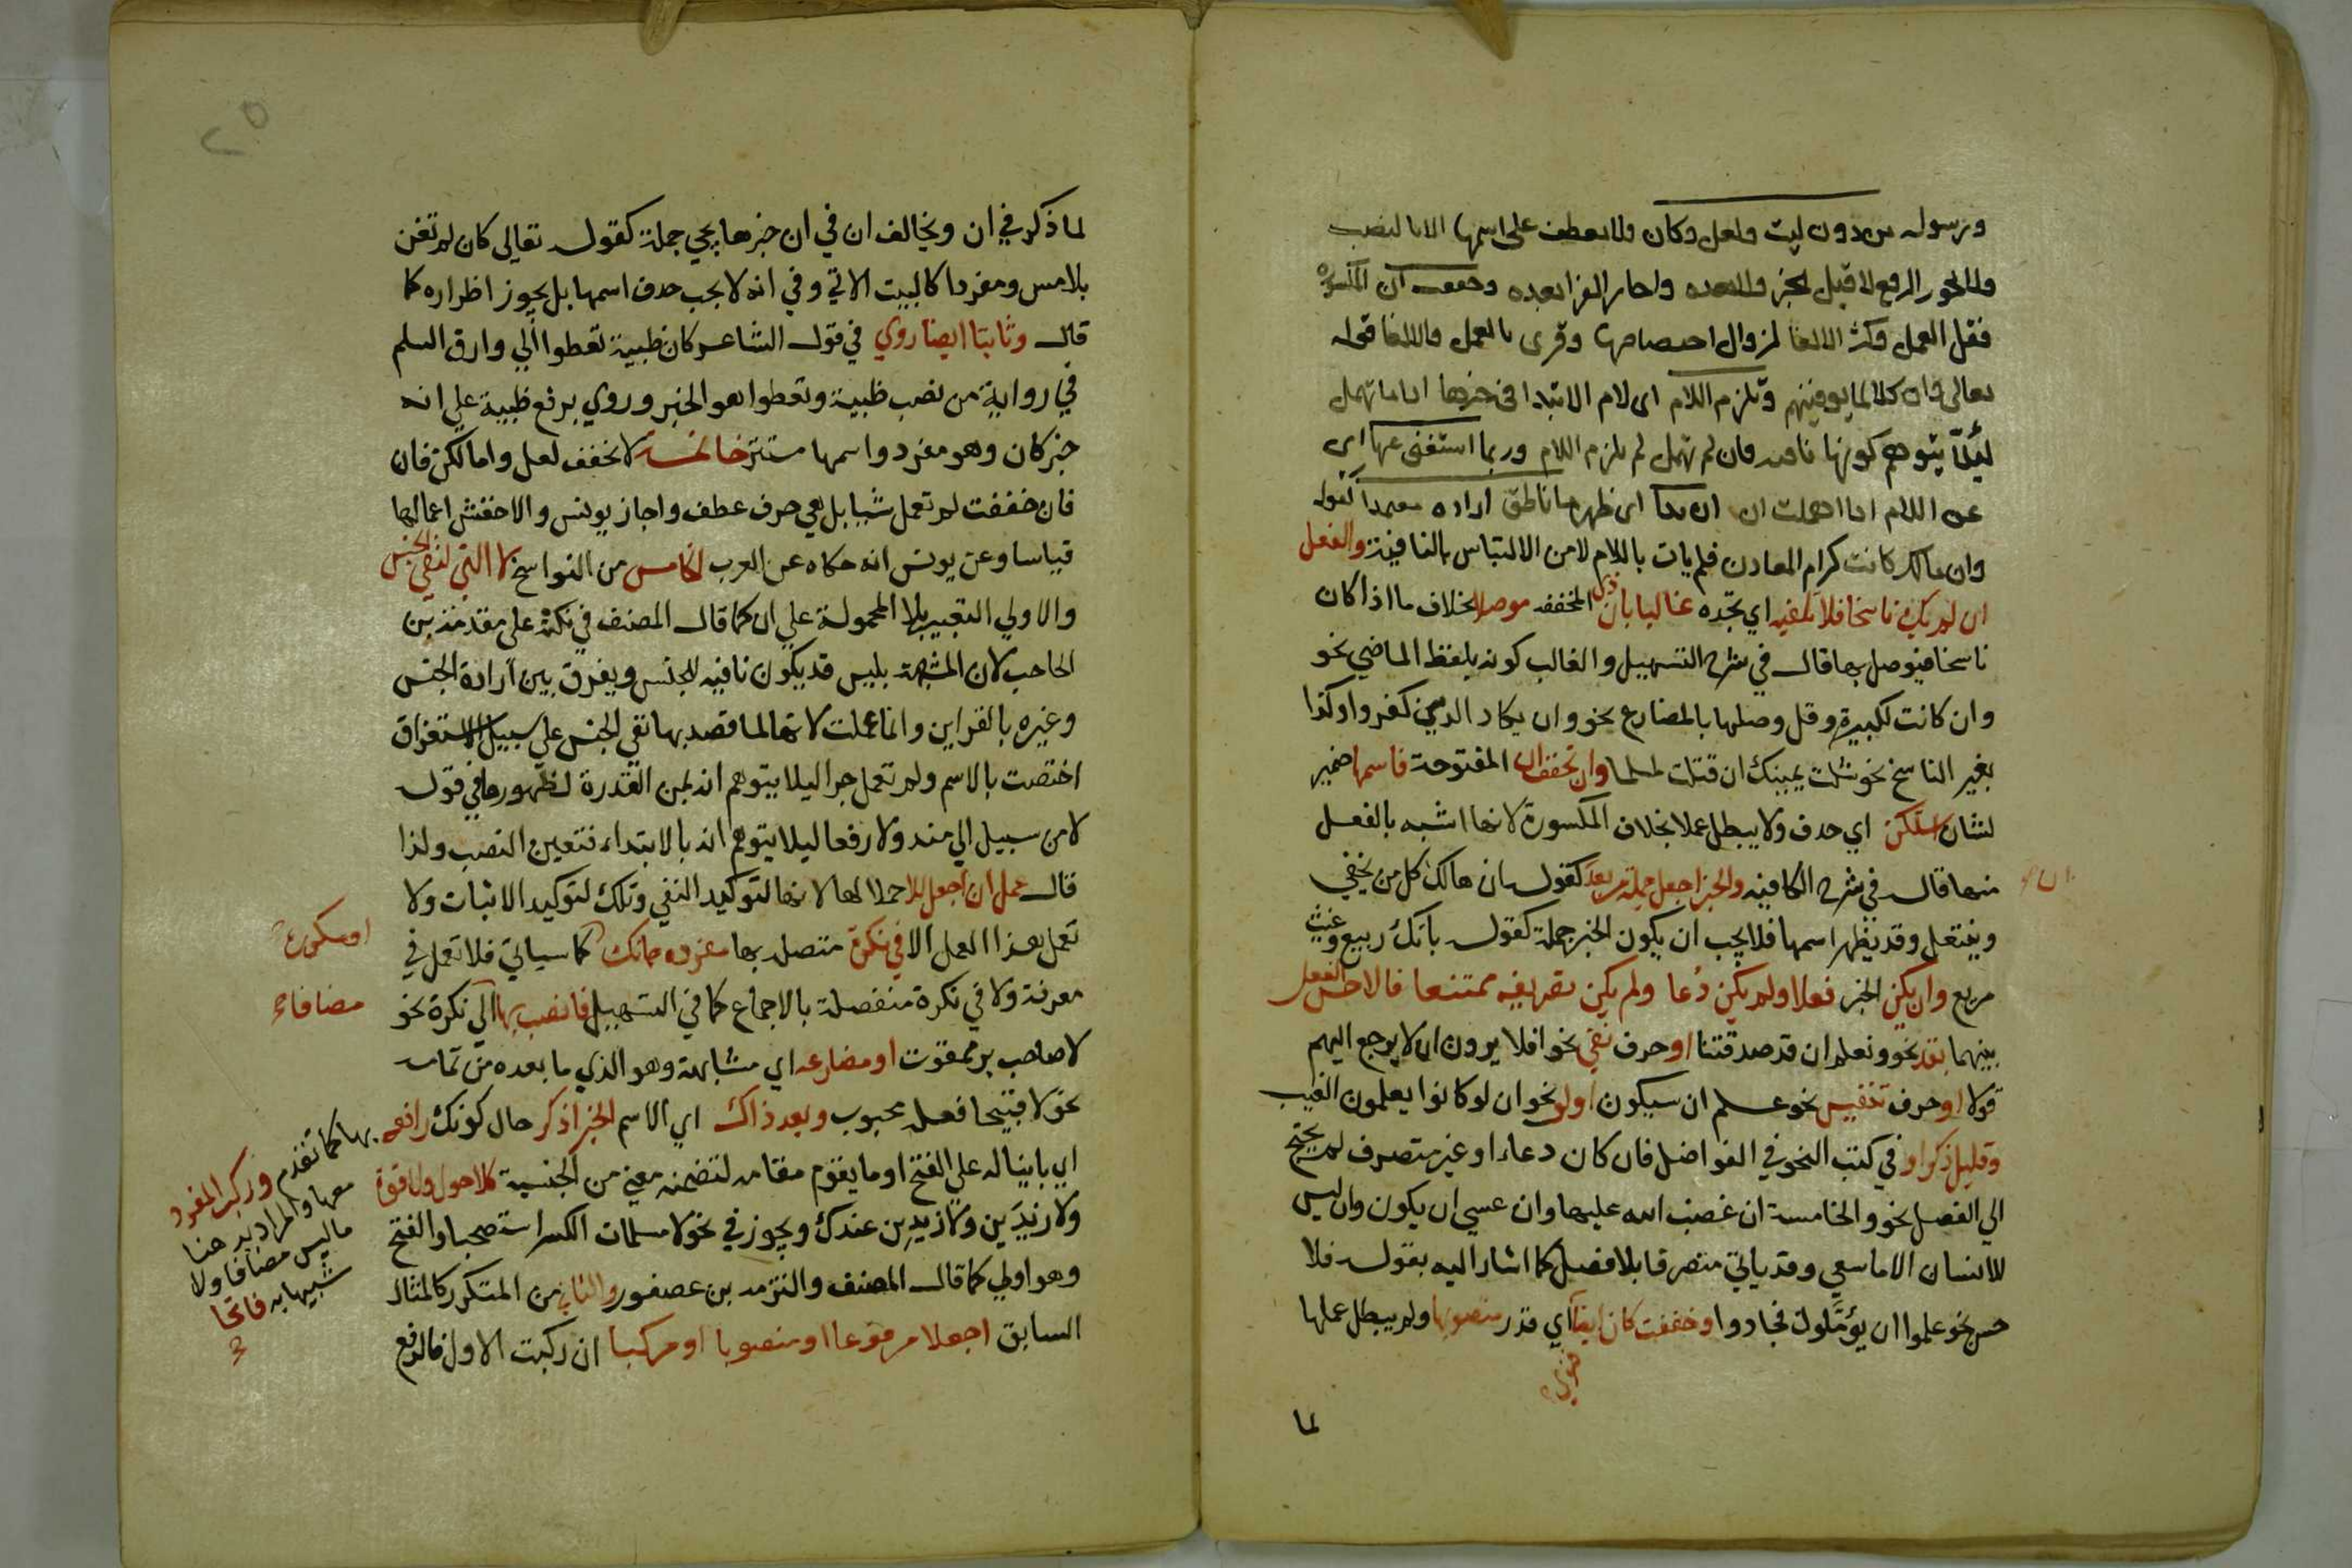 ورسوله من دون ليت ولعل وكان ولا يعطف على اسمها الا بالنصب
ولا يجوز الرفع لا قبل الخبر ولا بعده واجاز الفرا بعده وخففت ان المكسورة
فقل العمل وكثر الالغا لزوال اختصاصها وقرى بالعمل والالغا قوله
تعالى وان كلا لما يوفينهم وتلزم اللام اى لام الابتدا فى خبرها اذا ما تهمل
ليلا يتوهم كونها نافيه فان لم تهمل لم تلزم اللام وربما استغنى عنها اى
عن اللام اذا اهملت ان ان بدا اى ظهر ما ناطق اراده معتمدا كقوله
وان مالك كانت كرام المعادن فلم يات باللام لامن الالتباس بالنافية والفعل
ان لم يك ناسخا فلا تلفيه اي تجده غالبا بان ذي المخففه موصلا بخلاف ما اذا كان
ناسخا فيوصل بها قال في شرح التسهيل والغالب كونه بلفظ الماضي نحو
وان كانت لكبيرة وقل وصلها بالمضارع نحو وان يكاد الذين كفروا وكذا
بغير الناسخ نحو شلت يمينك ان قتلت لمسلما وان تخفف ان المفتوحة فاسمها ضمير
لشان استكن اي حذف ولا يبطل عملا بخلاف المكسورة لانها اشبه بالفعل
منها قال في شرح الكافيه والخبر اجعل جملة من بعد كقوله ان هالك كل من يخفي
وينتعل وقد يظهر اسمها فلا يجب ان يكون الخبر جملة كقوله بانك ربيع وغيث
مريع وان يكن الخبر فعلا ولم يكن دعا ولم يكن تصريفه ممتنعا فالاحسن الفصل
بينهما بقد نحو ونعلم ان قد صدقتنا او حرف نفي نحو افلا يرون ان لا يرجع اليهم
قولا او حرف تنفيس نحو علم ان سيكون او لو نحو ان لو كانوا يعلمون الغيب
وقليل ذكر لو في كتب النحو في الفواضل فان كان دعاء او غير متصرف لم يحتج
الي الفصل نحو والخامسة ان غضب الله عليها وان عسي ان يكون وان ليس
للانسان الا ما سعي وقد ياتي متصرفا بلا فصل كما اشار اليه بقوله فلا
حسن نحو علموا ان يؤملون فجادوا وخففت كان ايضا اي قدر منصوبها ولم يبطل عملها
لما
لما ذكر في ان ويخالف ان في ان خبرها يجي جملة كقوله تعالى كان لم تغن
بالامس ومفردا كالبيت الاتي وفي انه لا يجب حذف اسمها بل يجوز اظراره كما
قال وثابتا ايضا روي في قول الشاعر كان ظبية تعطوا الي وارق السلم
في رواية من نصب ظبية وتعطوا هو الخبر وروي برفع ظبية علي انه
خبر كان وهو مفرد واسمها مستتر خاتمة لا تخفف لعل واما لكن فان
فان خففت لم تعمل شيا بل هي حرف عطف واجاز يونس والاخفش اعمالها
قياسا وعن يونس انه حكاه عن العرب الخامس من النواسخ لا التي لنفي الجنس
والاولي التعبير بلا المحمولة علي ان كما قال المصنف في نكته على مقدمة بن
الحاجب لان المشبهة بليس قد يكون نافيه للجنس ويفرق بين ارادة الجنس
وغيره بالقراين وانما عملت لانها لما قصد بها نفي الجنس علي سبيل الاستغراق
اختصت بالاسم ولم تعمل جرا ليلا يتوهم انه بمن المقدرة لظهورها في قوله
لا من سبيل الي هند ولا رفعا ليلا يتوهم انه بالابتداء فتعين النصب ولذا
قال عمل ان اجعل للا حملا لها لانها لتوكيد النفي وتلك لتوكيد الاثبات ولا
تعمل هذا العمل الا في نكرة متصله بها مفرده جاتك كما سياتي فلا تعمل في
او مكررة
معرفة ولا في نكرة منفصلة بالاجماع كما في التسهيل فانصب بها الي نكرة نحو
مضافا
لا صاحب بر ممقوت او مضارعه اي مشابهه وهو الذي ما بعده من تمامه
نحو لا قبيحا فعله محبوب وبعد ذاك اي الاسم الخبر اذكر حال كونك رافعه بها كما تقدم وركب المفرد
معها والمراد به هنا
ما ليس مضافا ولا
شبيها به فاتحا
اي بانيا له علي الفتح او ما يقوم مقامه لتضمنه معني من الجنسية كلا حول ولا قوة
ولا زيدين ولا زيدين عندك ويجوز في نحو لا مسلمات الكسر استصحبا والفتح
وهو اولي كما قال المصنف والتزمه بن عصفور والثاني من المتكرر كالمثال
السابق اجعلا مرفوعا او منصوبا او مركبا ان ركبت الاول فالرفع